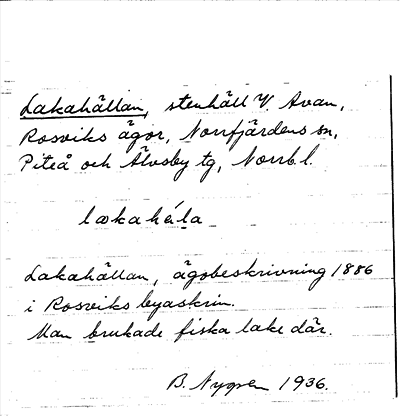 Lakahällan, stenhäll V. Avan,
Rosviks ägor, Norrfjärdens sn,
Piteå och Älvsby tg, Norrb l.
lakahäla
Lakahällan, ägobeskrivning 1886
i Rosviks byaskrin.
Man brukade fiska lake där.
B. Nygren 1936.